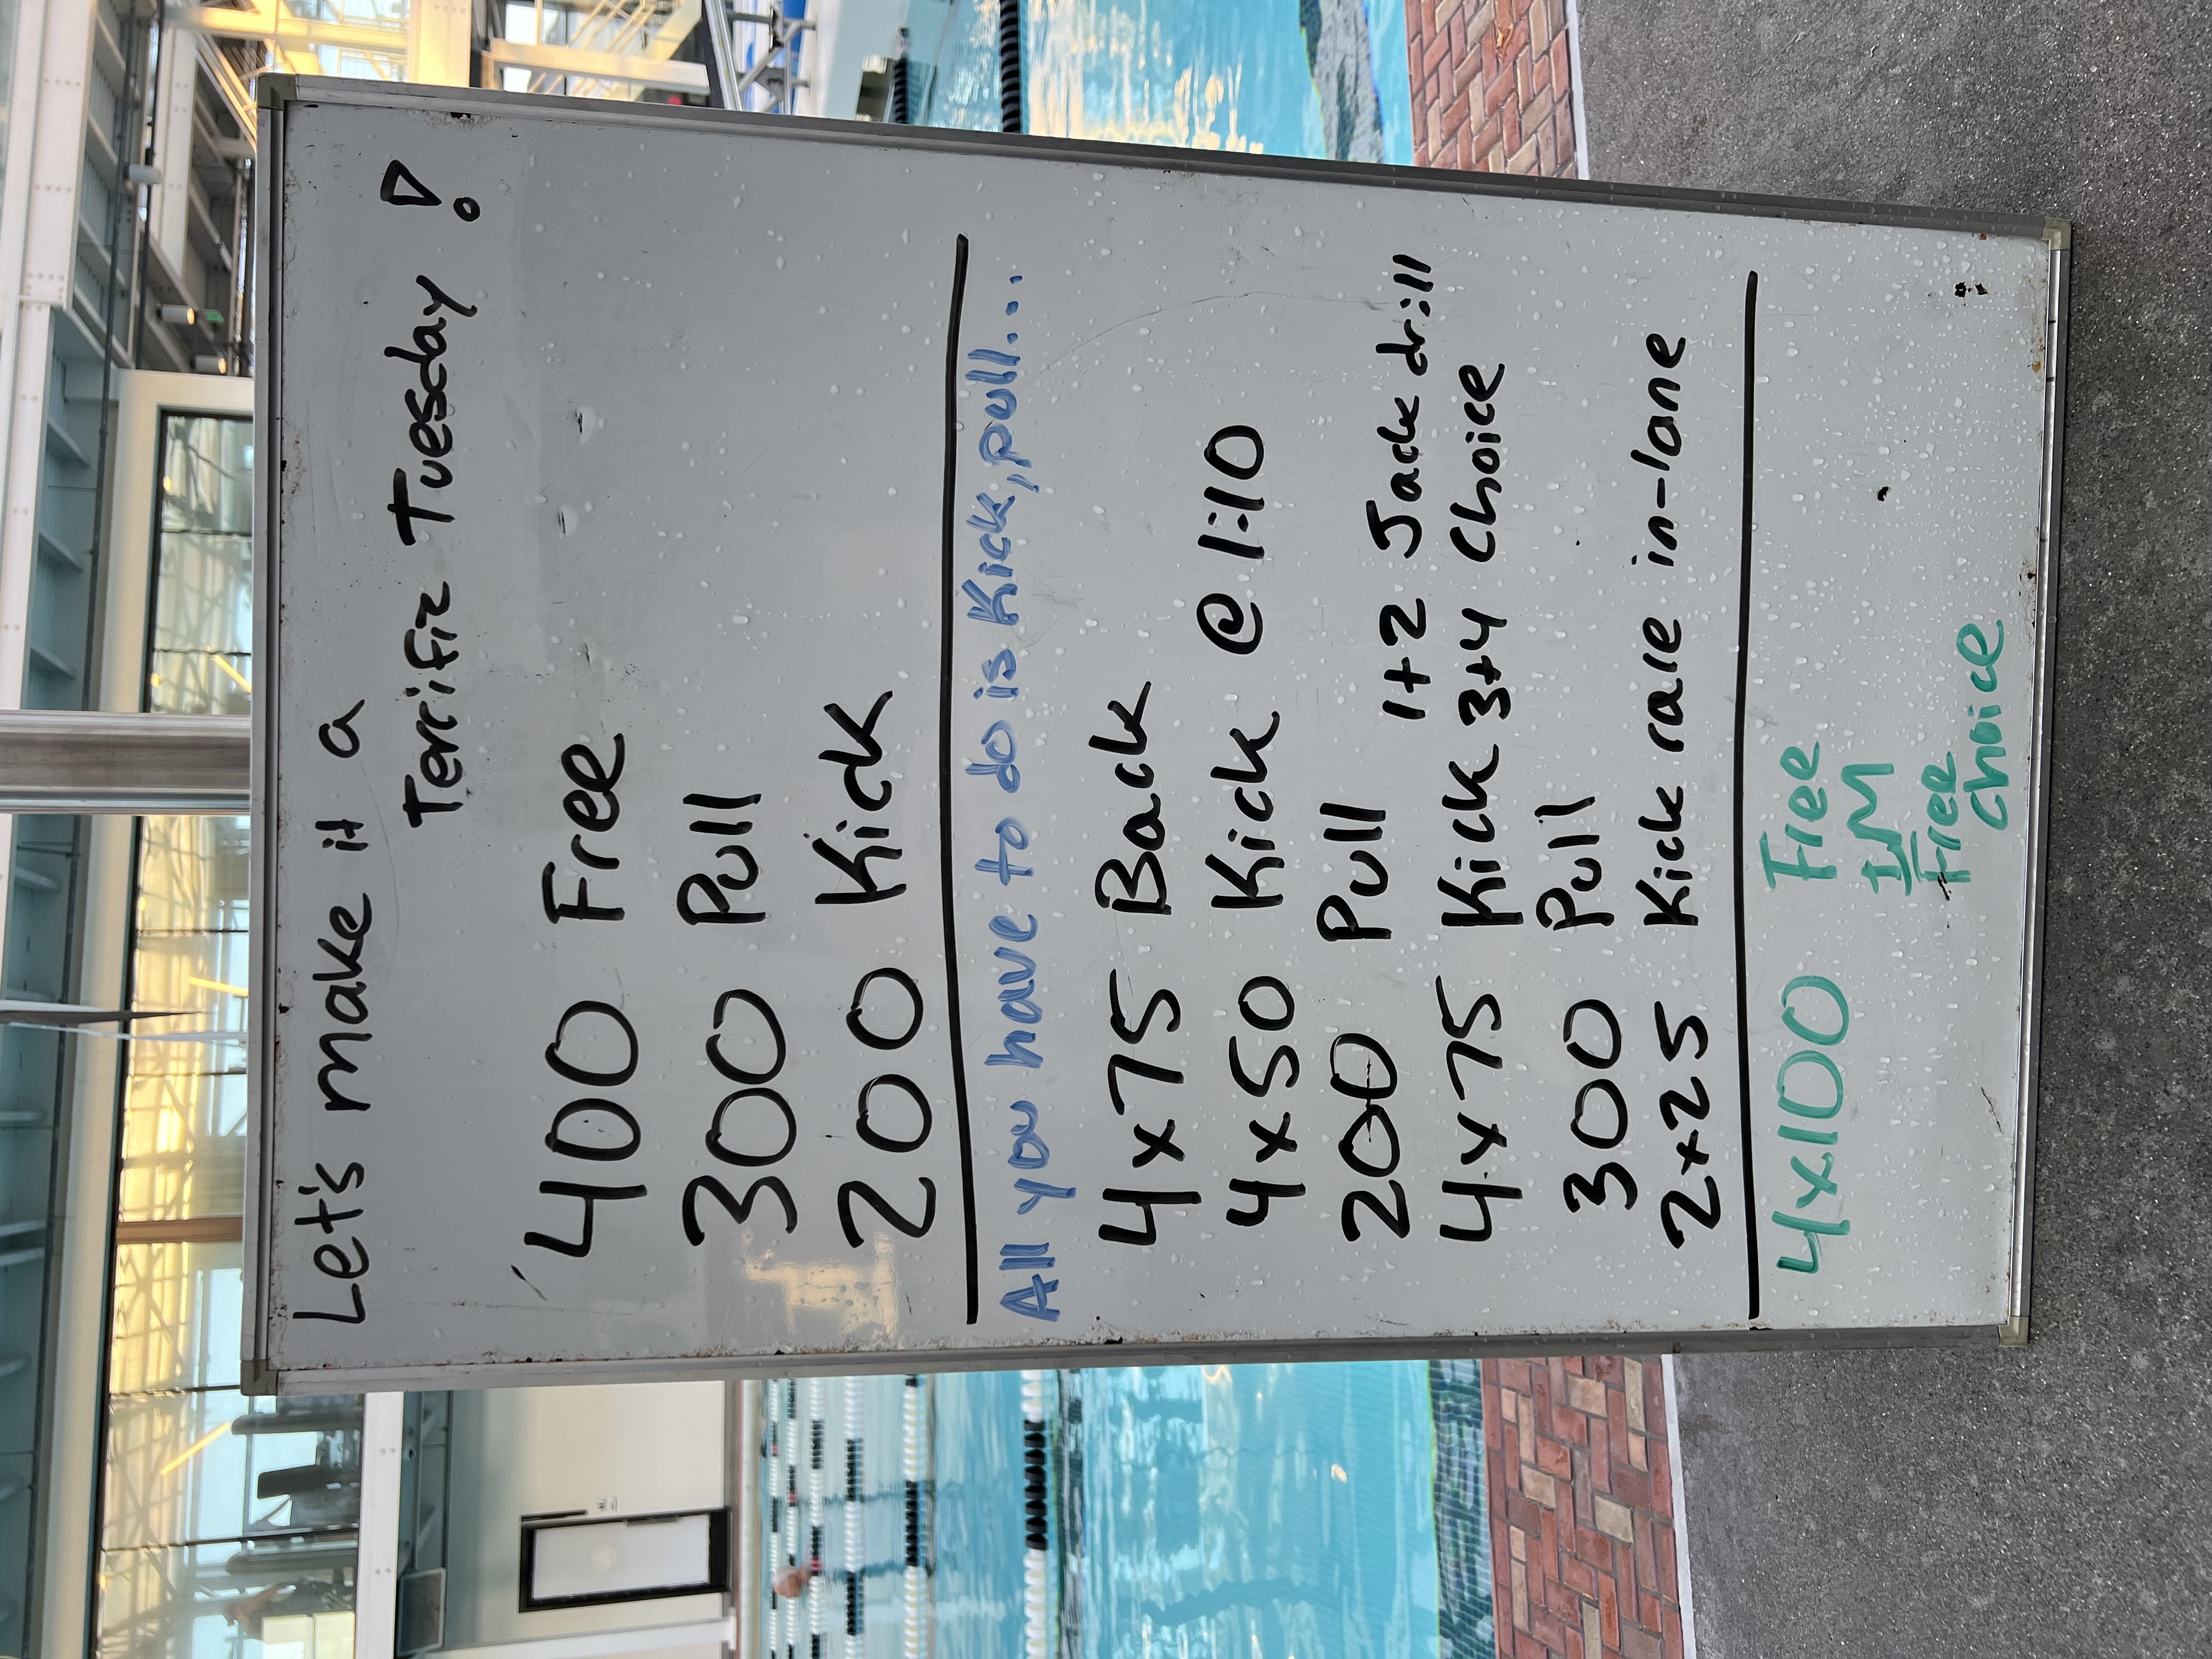 Let's make it a
Terrific Tuesday!
400 Free
300 Pull
200 Kick
All you have to do is Kick, pull...
4x75 Back
4x50 Kick @ 1:10
200 Pull
1+2 Jack drill
4x75 Kick 3+4 Choice
300 Pull
2x25 Kick rale in-lane
4x100 Free
IM
Free
Choice